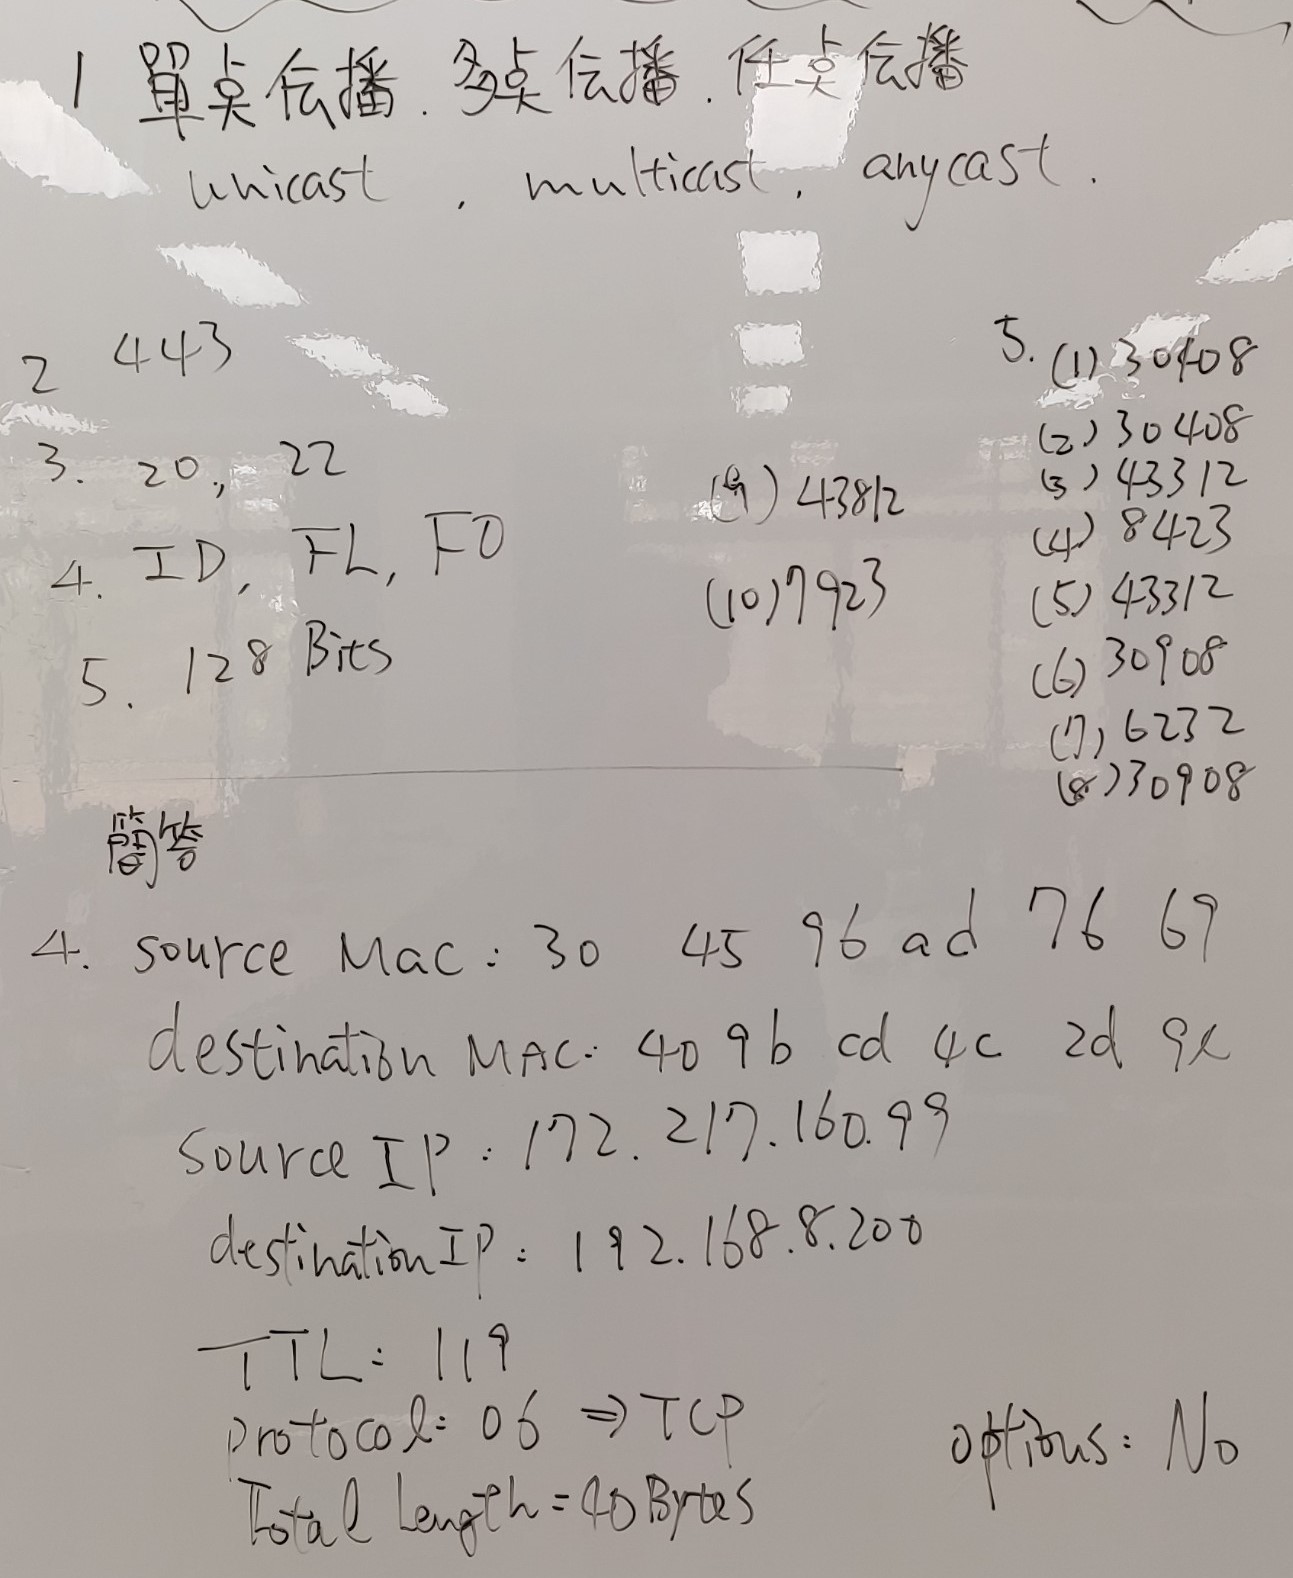 1 單点伝播. 多点伝播. 任点伝播
unicast , multicast, anycast.
2 443
3. 20, 22
4. ID, FL, FO
5. 128 Bits
5. (1) 30408
(2) 30408
(3) 43312
(4) 8423
(5) 43312
(6) 30908
(7) 6232
(8) 30908
(9) 43812
(10) 7923
簡答
4. source Mac: 30 45 96 ad 76 69
destination MAC: 40 9b cd 4c 2d 9e
Source IP: 172.217.160.99
destination IP: 192.168.8.200
TTL: 119
protocol: 06 ⇒ TCP
Total Length = 40 Bytes
options: No